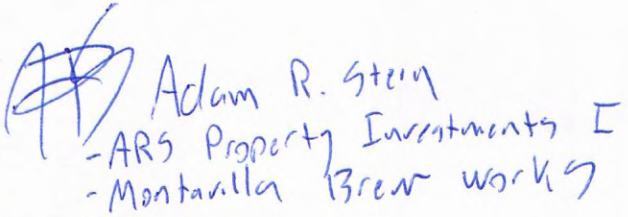 Adam R. Stern
- ARS Property Investments I
- Montavilla Brew works